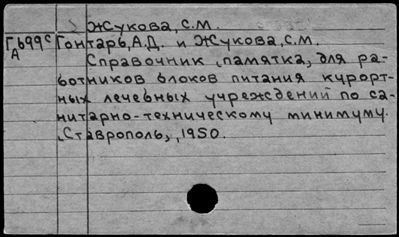 Жукова, С.М.
Г699с Гонтарь, А.Д. и Жукова, С.М.
А Справочник „памятка„ для ра-
ботников блоков питания курорт-
ных лечебных учреждений по са-
нитарно-техническому минимуму.
„Ставрополь„, 1950.